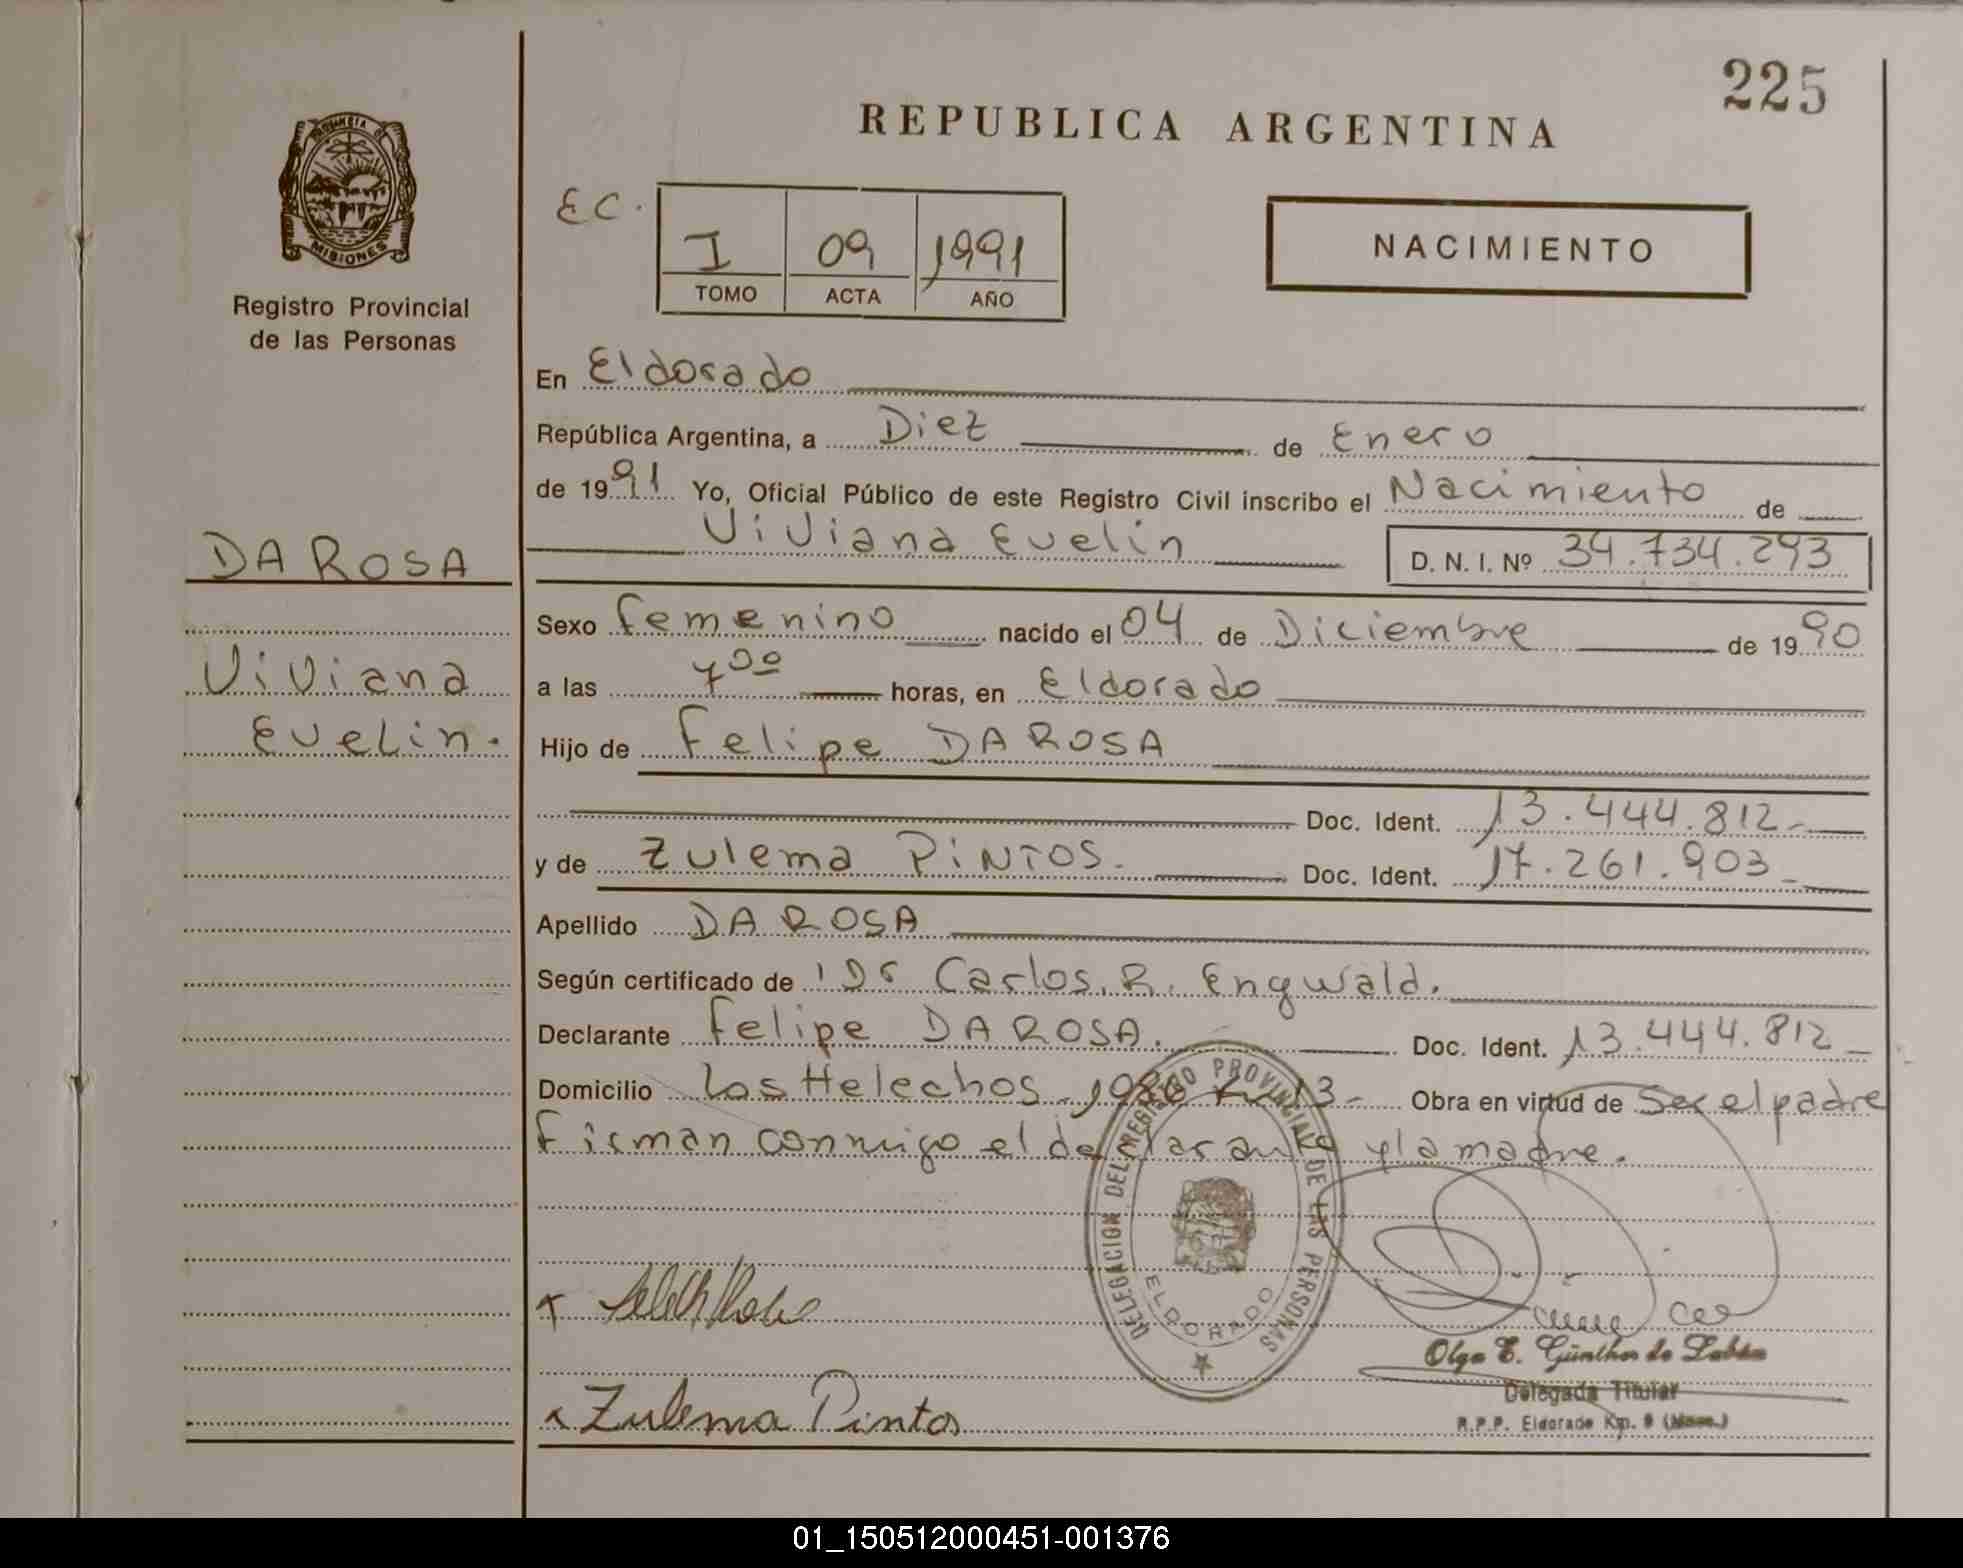 225
REPUBLICA ARGENTINA
PROVINCIA DE
MISIONES
Registro Provincial
de las Personas
EC.
I 09 1991
TOMO ACTA AÑO
NACIMIENTO
En Eldorado
República Argentina, a Diez de Enero
de 1991 Yo, Oficial Público de este Registro Civil inscribo el Nacimiento de
Viviana Evelin D. N. I. Nº 34.734.293
DA ROSA
Viviana
Evelin.
Sexo femenino nacido el 04 de Diciembre de 1990
a las 7⁰⁰ horas, en Eldorado
Hijo de Felipe DA ROSA
Doc. Ident. 13.444.812-
y de Zulema PINTOS. Doc. Ident. 17.261.903-
Apellido DA ROSA
Según certificado de Dr Carlos. R. Engwald.
Declarante Felipe DA ROSA. Doc. Ident. 13.444.812-
Domicilio Los Helechos 1986 Km 13- Obra en virtud de Ser el padre
Firman conmigo el declarante y la madre.
DELEGACION DEL REGISTRO PROVINCIAL DE LAS PERSONAS
ELDORADO
x
x Zulema Pintos
Olga E. Günther de
Delegada Titular
R.P.P. Eldorado Km. 9 (Mnes.)
01_150512000451-001376